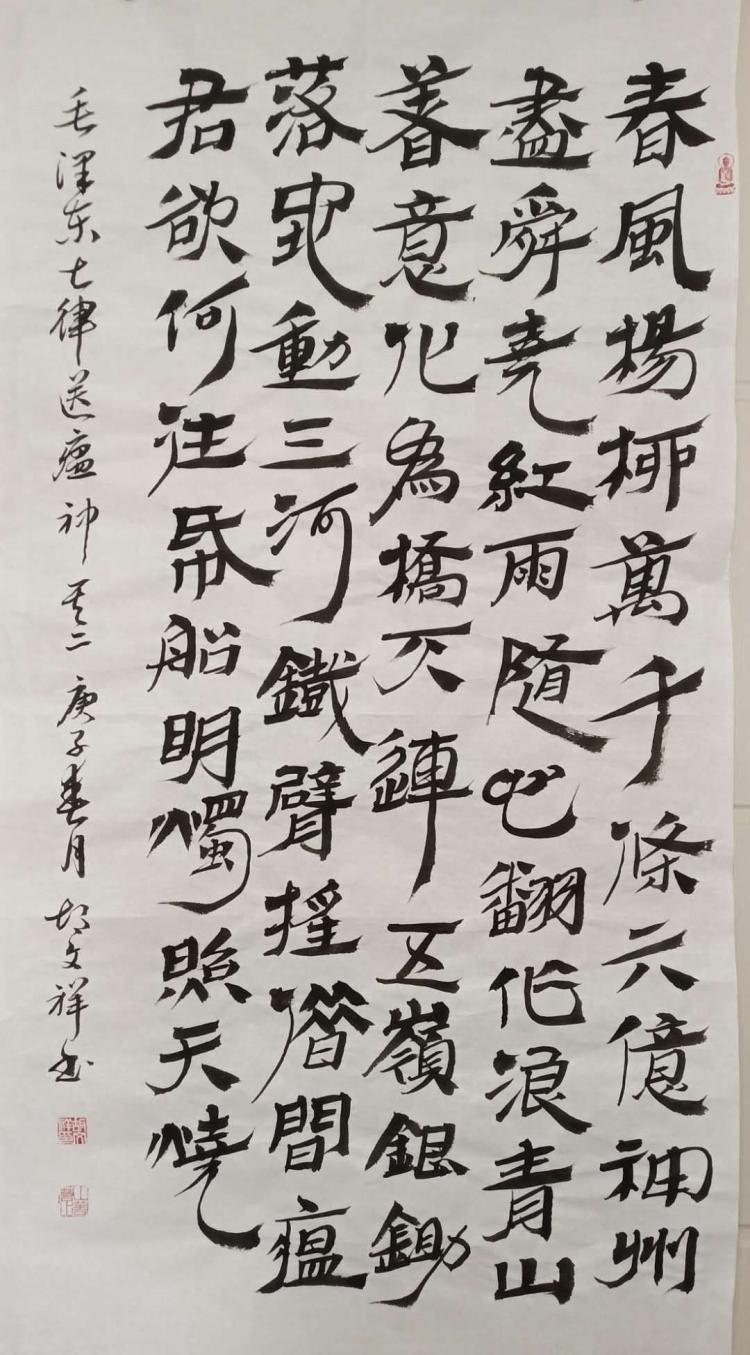 春風楊柳萬千條六億神州
盡舜堯紅雨隨心翻作浪青山
著意化為橋天連五嶺銀鋤
落地動三河鐵臂搖借問瘟
君欲何往帋船明燭照天燒
毛泽东七律送瘟神其二庚子春月胡文祥书